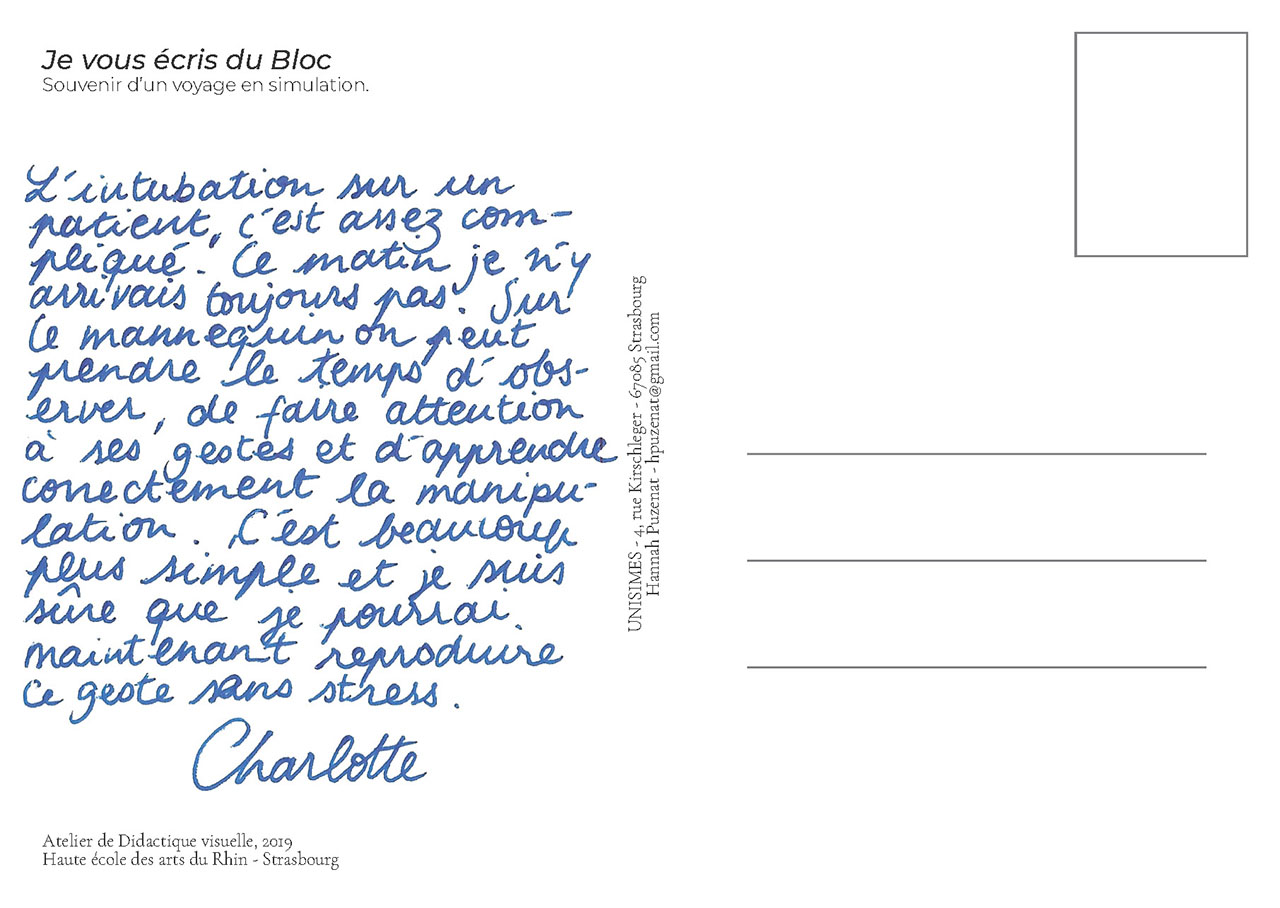 Je vous écris du Bloc
Souvenir d'un voyage en simulation.
L'intubation sur un
patient, c'est assez com-
pliqué. Ce matin je n'y
arrivais toujours pas. Sur
le mannequin on peut
prendre le temps d'obs-
erver, de faire attention
à ses gestes et d'apprendre
correctement la manipu-
lation. C'est beaucoup
plus simple et je suis
sûre que je pourrai
maintenant reproduire
ce geste sans stress.
Charlotte
Atelier de Didactique visuelle, 2019
Haute école des arts du Rhin - Strasbourg
UNISIMES - 4, rue Kirschleger - 67085 Strasbourg
Hannah Puzenat - hpuzenat@gmail.com